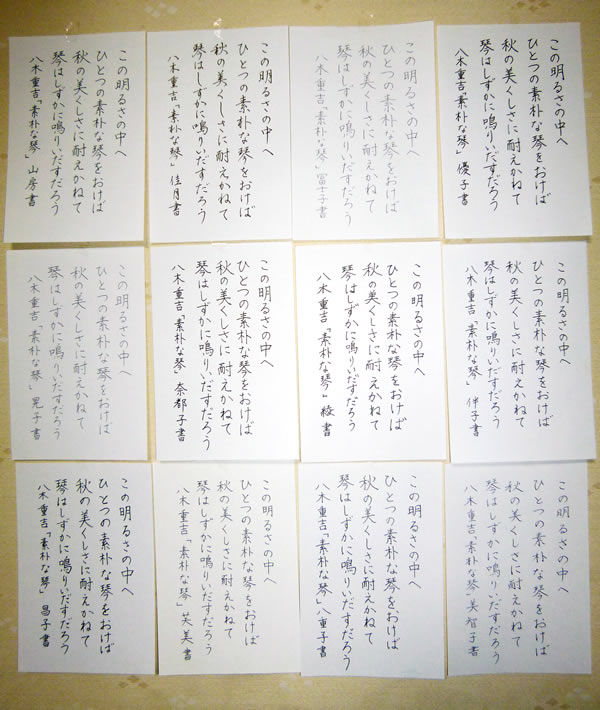 この明るさの中へ
ひとつの素朴な琴をおけば
秋の美くしさに耐えかねて
琴はしずかに鳴りいだすだろう
八木重吉「素朴な琴」 優子書
この明るさの中へ
ひとつの素朴な琴をおけば
秋の美くしさに耐えかねて
琴はしずかに鳴りいだすだろう
八木重吉「素朴な琴」 冨士子書
この明るさの中へ
ひとつの素朴な琴をおけば
秋の美くしさに耐えかねて
琴はしずかに鳴りいだすだろう
八木重吉「素朴な琴」 佳月書
この明るさの中へ
ひとつの素朴な琴をおけば
秋の美くしさに耐えかねて
琴はしずかに鳴りいだすだろう
八木重吉「素朴な琴」 山房書
この明るさの中へ
ひとつの素朴な琴をおけば
秋の美くしさに耐えかねて
琴はしずかに鳴りいだすだろう
八木重吉「素朴な琴」 伴子書
この明るさの中へ
ひとつの素朴な琴をおけば
秋の美くしさに耐えかねて
琴はしずかに鳴りいだすだろう
八木重吉「素朴な琴」 綾書
この明るさの中へ
ひとつの素朴な琴をおけば
秋の美くしさに耐えかねて
琴はしずかに鳴りいだすだろう
八木重吉「素朴な琴」 奈都子書
この明るさの中へ
ひとつの素朴な琴をおけば
秋の美くしさに耐えかねて
琴はしずかに鳴りいだすだろう
八木重吉「素朴な琴」 晃子書
この明るさの中へ
ひとつの素朴な琴をおけば
秋の美くしさに耐えかねて
琴はしずかに鳴りいだすだろう
八木重吉「素朴な琴」 美智子書
この明るさの中へ
ひとつの素朴な琴をおけば
秋の美くしさに耐えかねて
琴はしずかに鳴りいだすだろう
八木重吉「素朴な琴」 八重子書
この明るさの中へ
ひとつの素朴な琴をおけば
秋の美くしさに耐えかねて
琴はしずかに鳴りいだすだろう
八木重吉「素朴な琴」 芙美書
この明るさの中へ
ひとつの素朴な琴をおけば
秋の美くしさに耐えかねて
琴はしずかに鳴りいだすだろう
八木重吉「素朴な琴」 昌子書